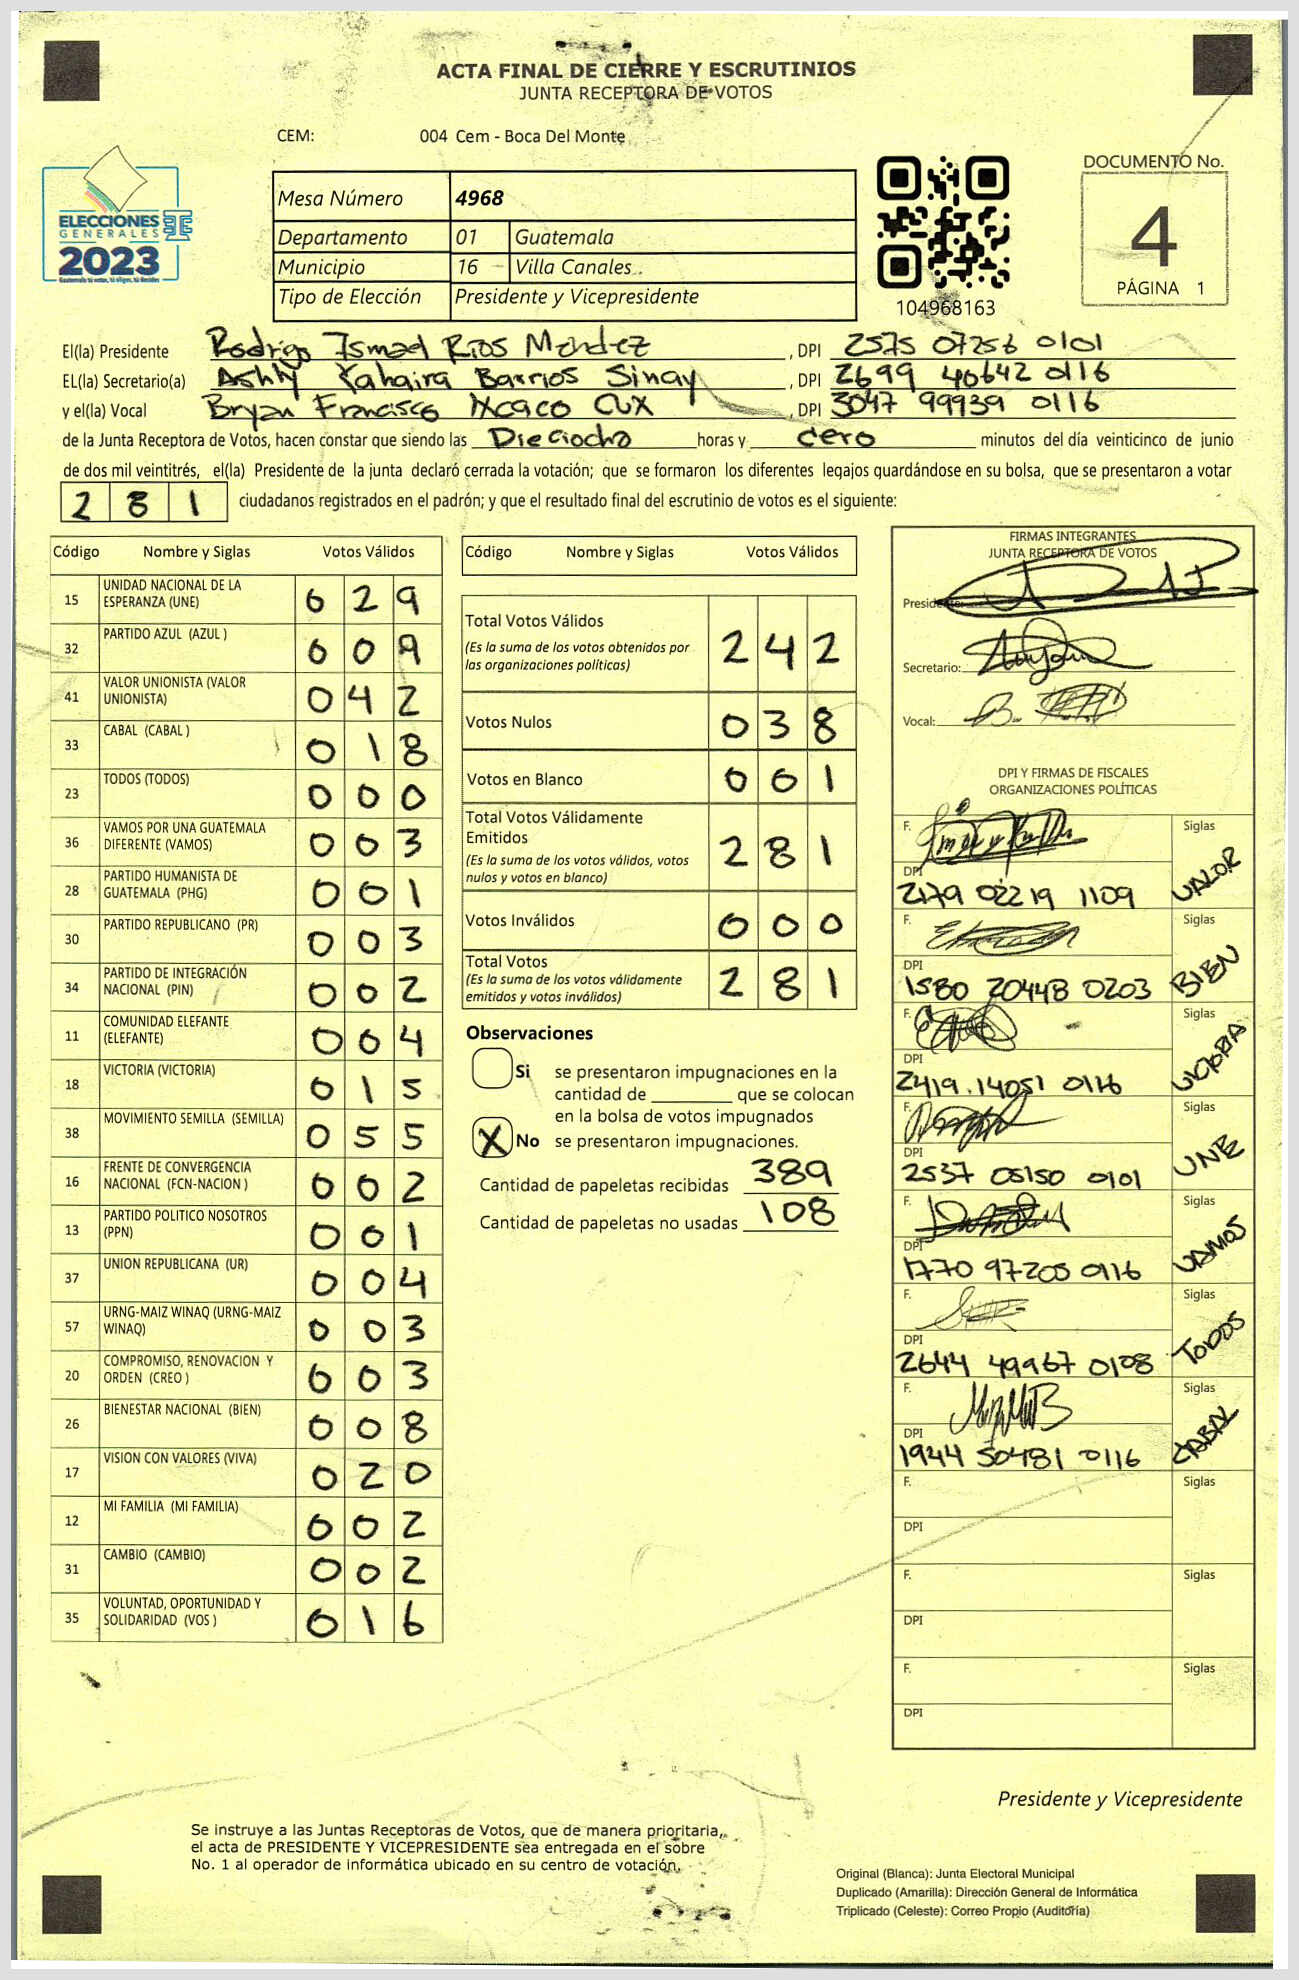 ACTA FINAL DE CIERRE Y ESCRUTINIOS
JUNTA RECEPTORA DE VOTOS
CEM: 004 Cem - Boca Del Monte
ELECCIONES
GENERALES
2023
Mesa Número 4968
Departamento 01 Guatemala
Municipio 16 Villa Canales
Tipo de Elección Presidente y Vicepresidente
104968163
DOCUMENTO No.
4
PÁGINA 1
El(la) Presidente Rodrigo Ismael Rios Mendez, DPI 2575 07256 0101
EL(la) Secretario(a) Ashly Yahaira Barrios Sinay, DPI 2699 40642 0116
y el(la) Vocal Bryan Francisco Ixcaco Cux, DPI 3047 99939 0116
de la Junta Receptora de Votos, hacen constar que siendo las Dieciocho horas y cero minutos del día veinticinco de junio
de dos mil veintitrés, el(la) Presidente de la junta declaró cerrada la votación; que se formaron los diferentes legajos guardándose en su bolsa, que se presentaron a votar
281 ciudadanos registrados en el padrón; y que el resultado final del escrutinio de votos es el siguiente:
Código Nombre y Siglas Votos Válidos
15 UNIDAD NACIONAL DE LA ESPERANZA (UNE) 029
32 PARTIDO AZUL (AZUL ) 009
41 VALOR UNIONISTA (VALOR UNIONISTA) 042
33 CABAL (CABAL ) 018
23 TODOS (TODOS) 000
36 VAMOS POR UNA GUATEMALA DIFERENTE (VAMOS) 003
28 PARTIDO HUMANISTA DE GUATEMALA (PHG) 001
30 PARTIDO REPUBLICANO (PR) 003
34 PARTIDO DE INTEGRACIÓN NACIONAL (PIN) 002
11 COMUNIDAD ELEFANTE (ELEFANTE) 004
18 VICTORIA (VICTORIA) 015
38 MOVIMIENTO SEMILLA (SEMILLA) 055
16 FRENTE DE CONVERGENCIA NACIONAL (FCN-NACION ) 002
13 PARTIDO POLITICO NOSOTROS (PPN) 001
37 UNION REPUBLICANA (UR) 004
57 URNG-MAIZ WINAQ (URNG-MAIZ WINAQ) 003
20 COMPROMISO, RENOVACION Y ORDEN (CREO ) 003
26 BIENESTAR NACIONAL (BIEN) 008
17 VISION CON VALORES (VIVA) 020
12 MI FAMILIA (MI FAMILIA) 002
31 CAMBIO (CAMBIO) 002
35 VOLUNTAD, OPORTUNIDAD Y SOLIDARIDAD (VOS ) 016
Código Nombre y Siglas Votos Válidos
Total Votos Válidos 242
(Es la suma de los votos obtenidos por
las organizaciones políticas)
Votos Nulos 038
Votos en Blanco 001
Total Votos Válidamente
Emitidos 281
(Es la suma de los votos válidos, votos
nulos y votos en blanco)
Votos Inválidos 000
Total Votos 281
(Es la suma de los votos válidamente
emitidos y votos inválidos)
Observaciones
Si se presentaron impugnaciones en la
cantidad de ________ que se colocan
en la bolsa de votos impugnados
X No se presentaron impugnaciones.
Cantidad de papeletas recibidas 389
Cantidad de papeletas no usadas 108
FIRMAS INTEGRANTES
JUNTA RECEPTORA DE VOTOS
Presidente:
Secretario:
Vocal:
DPI Y FIRMAS DE FISCALES
ORGANIZACIONES POLÍTICAS
F. Siglas
DPI
2179 02219 1109 VALOR
F. Siglas
DPI
1580 20448 0203 BIEN
F. Siglas
DPI
2419 14051 0116
F. Siglas
DPI
2537 05150 0101 UNE
F. Siglas
DPI
1770 97205 0116 VAMOS
F. Siglas
DPI
2644 49967 0108 TODOS
F. Siglas
DPI
1944 50481 0116 CABAL
F. Siglas
DPI
F. Siglas
DPI
F. Siglas
DPI
Presidente y Vicepresidente
Se instruye a las Juntas Receptoras de Votos, que de manera prioritaria,
el acta de PRESIDENTE Y VICEPRESIDENTE sea entregada en el sobre
No. 1 al operador de informática ubicado en su centro de votación.
Original (Blanca): Junta Electoral Municipal
Duplicado (Amarilla): Dirección General de Informática
Triplicado (Celeste): Correo Propio (Auditoría)